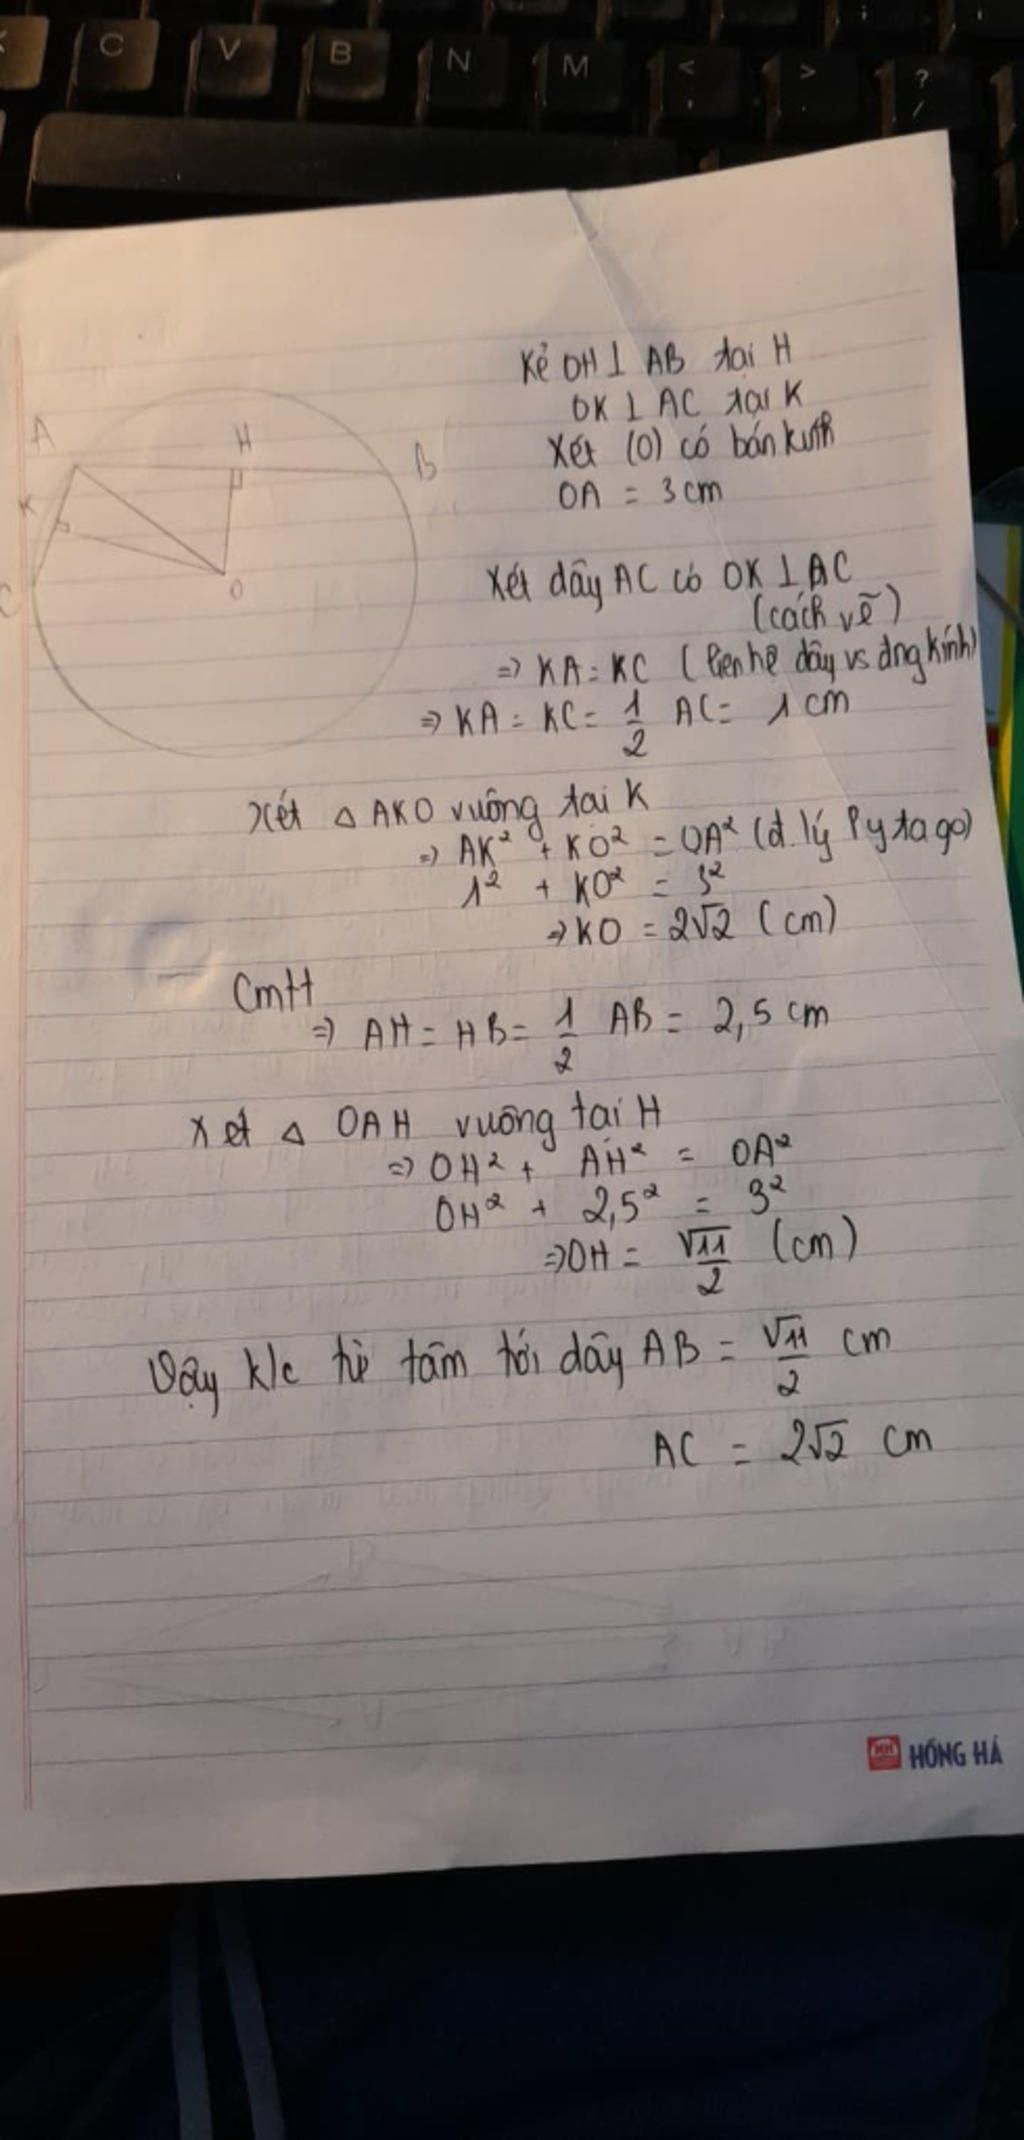 C V B N M < , > . ? /
Kẻ OH ⊥ AB tại H
OK ⊥ AC tại K
Xét (O) có bán kính
OA = 3 cm
A H B
K
C O
Xét dây AC có OK ⊥ AC
(cách vẽ)
=> KA = KC (liên hệ dây vs đng kính)
=> KA = KC = 1/2 AC = 1 cm
Xét △ AKO vuông tại K
=> AK² + KO² = OA² (đ. lý Pytago)
1² + KO² = 3²
=> KO = 2√2 (cm)
Cmtt
=> AH = HB = 1/2 AB = 2,5 cm
Xét △ OAH vuông tại H
=> OH² + AH² = OA²
OH² + 2,5² = 3²
=> OH = √11/2 (cm)
Vậy k/c từ tâm tới dây AB = √11/2 cm
AC = 2√2 cm
HH HỒNG HÀ